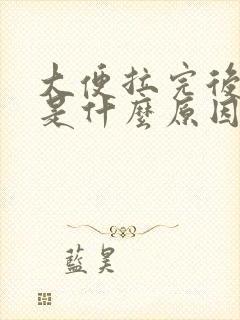 大便拉完後
是什麼原因
藍昊